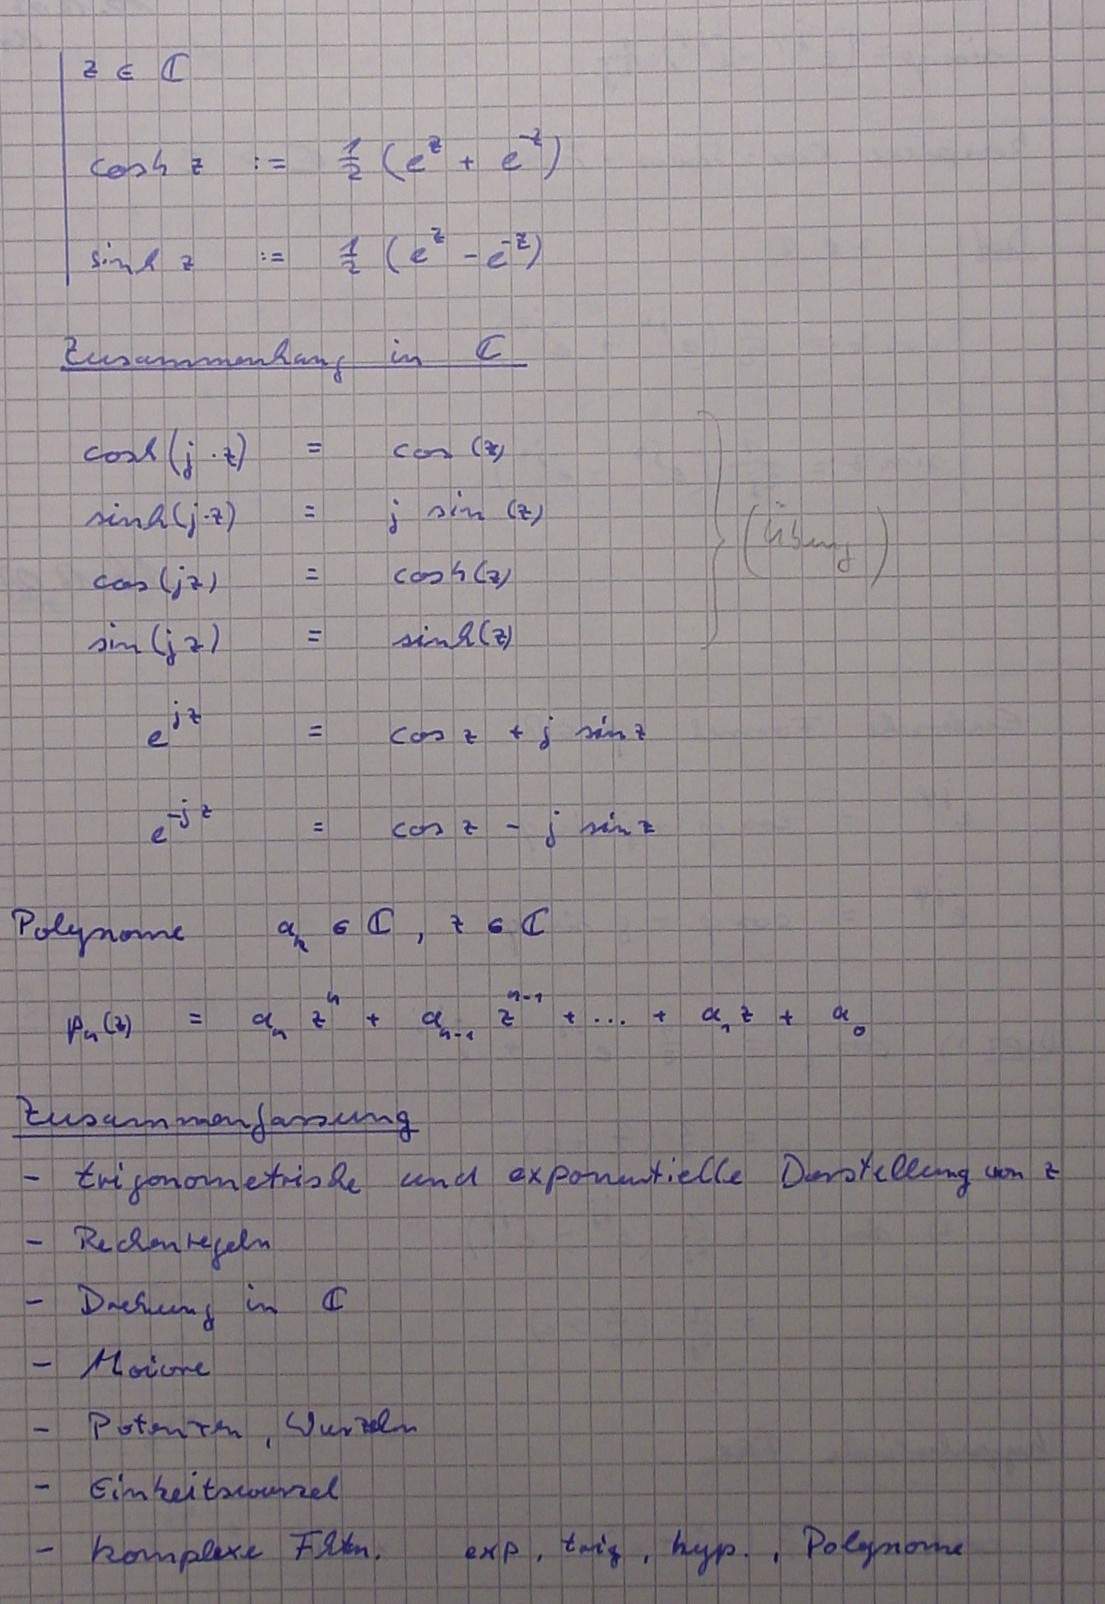 z ∈ ℂ
cosh z := 1/2 (e^z + e^-z)
sinh z := 1/2 (e^z - e^-z)
Zusammenhang in ℂ
cosh(j·z) = cos(z)
sinh(j·z) = j sin(z)
cos(jz) = cosh(z)
(Übung)
sin(jz) = sinh(z)
e^jz = cos z + j sin z
e^-jz = cos z - j sin z
Polynome a_k ∈ ℂ, z ∈ ℂ
p_n(z) = a_n z^n + a_n-1 z^n-1 + ... + a_1 z + a_0
Zusammenfassung
- trigonometrische und exponentielle Darstellung von z
- Rechenregeln
- Drehung in ℂ
- Moivre
- Potenzen, Wurzeln
- Einheitswurzel
- komplexe Fktn. exp, trig, hyp., Polynome